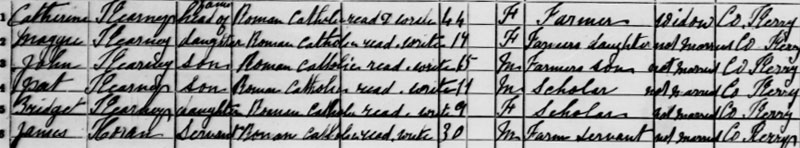 Catherine Kearney head of Roman Catholic read & write 44 F Farmer widow Co Kerry
Maggie Kearney daughter Roman Catholic read & write 17 F Farmers daughter not married Co Kerry
John Kearney Son Roman Catholic read & write 15 M Farmers son not married Co Kerry
Pat Kearney Son Roman Catholic read & write 11 M Scholar not married Co Kerry
Bridget Kearney daughter Roman Catholic read & write 9 F Scholar not married Co Kerry
James Horan Servant Roman Catholic read & write 30 M Farm servant not married Co Kerry